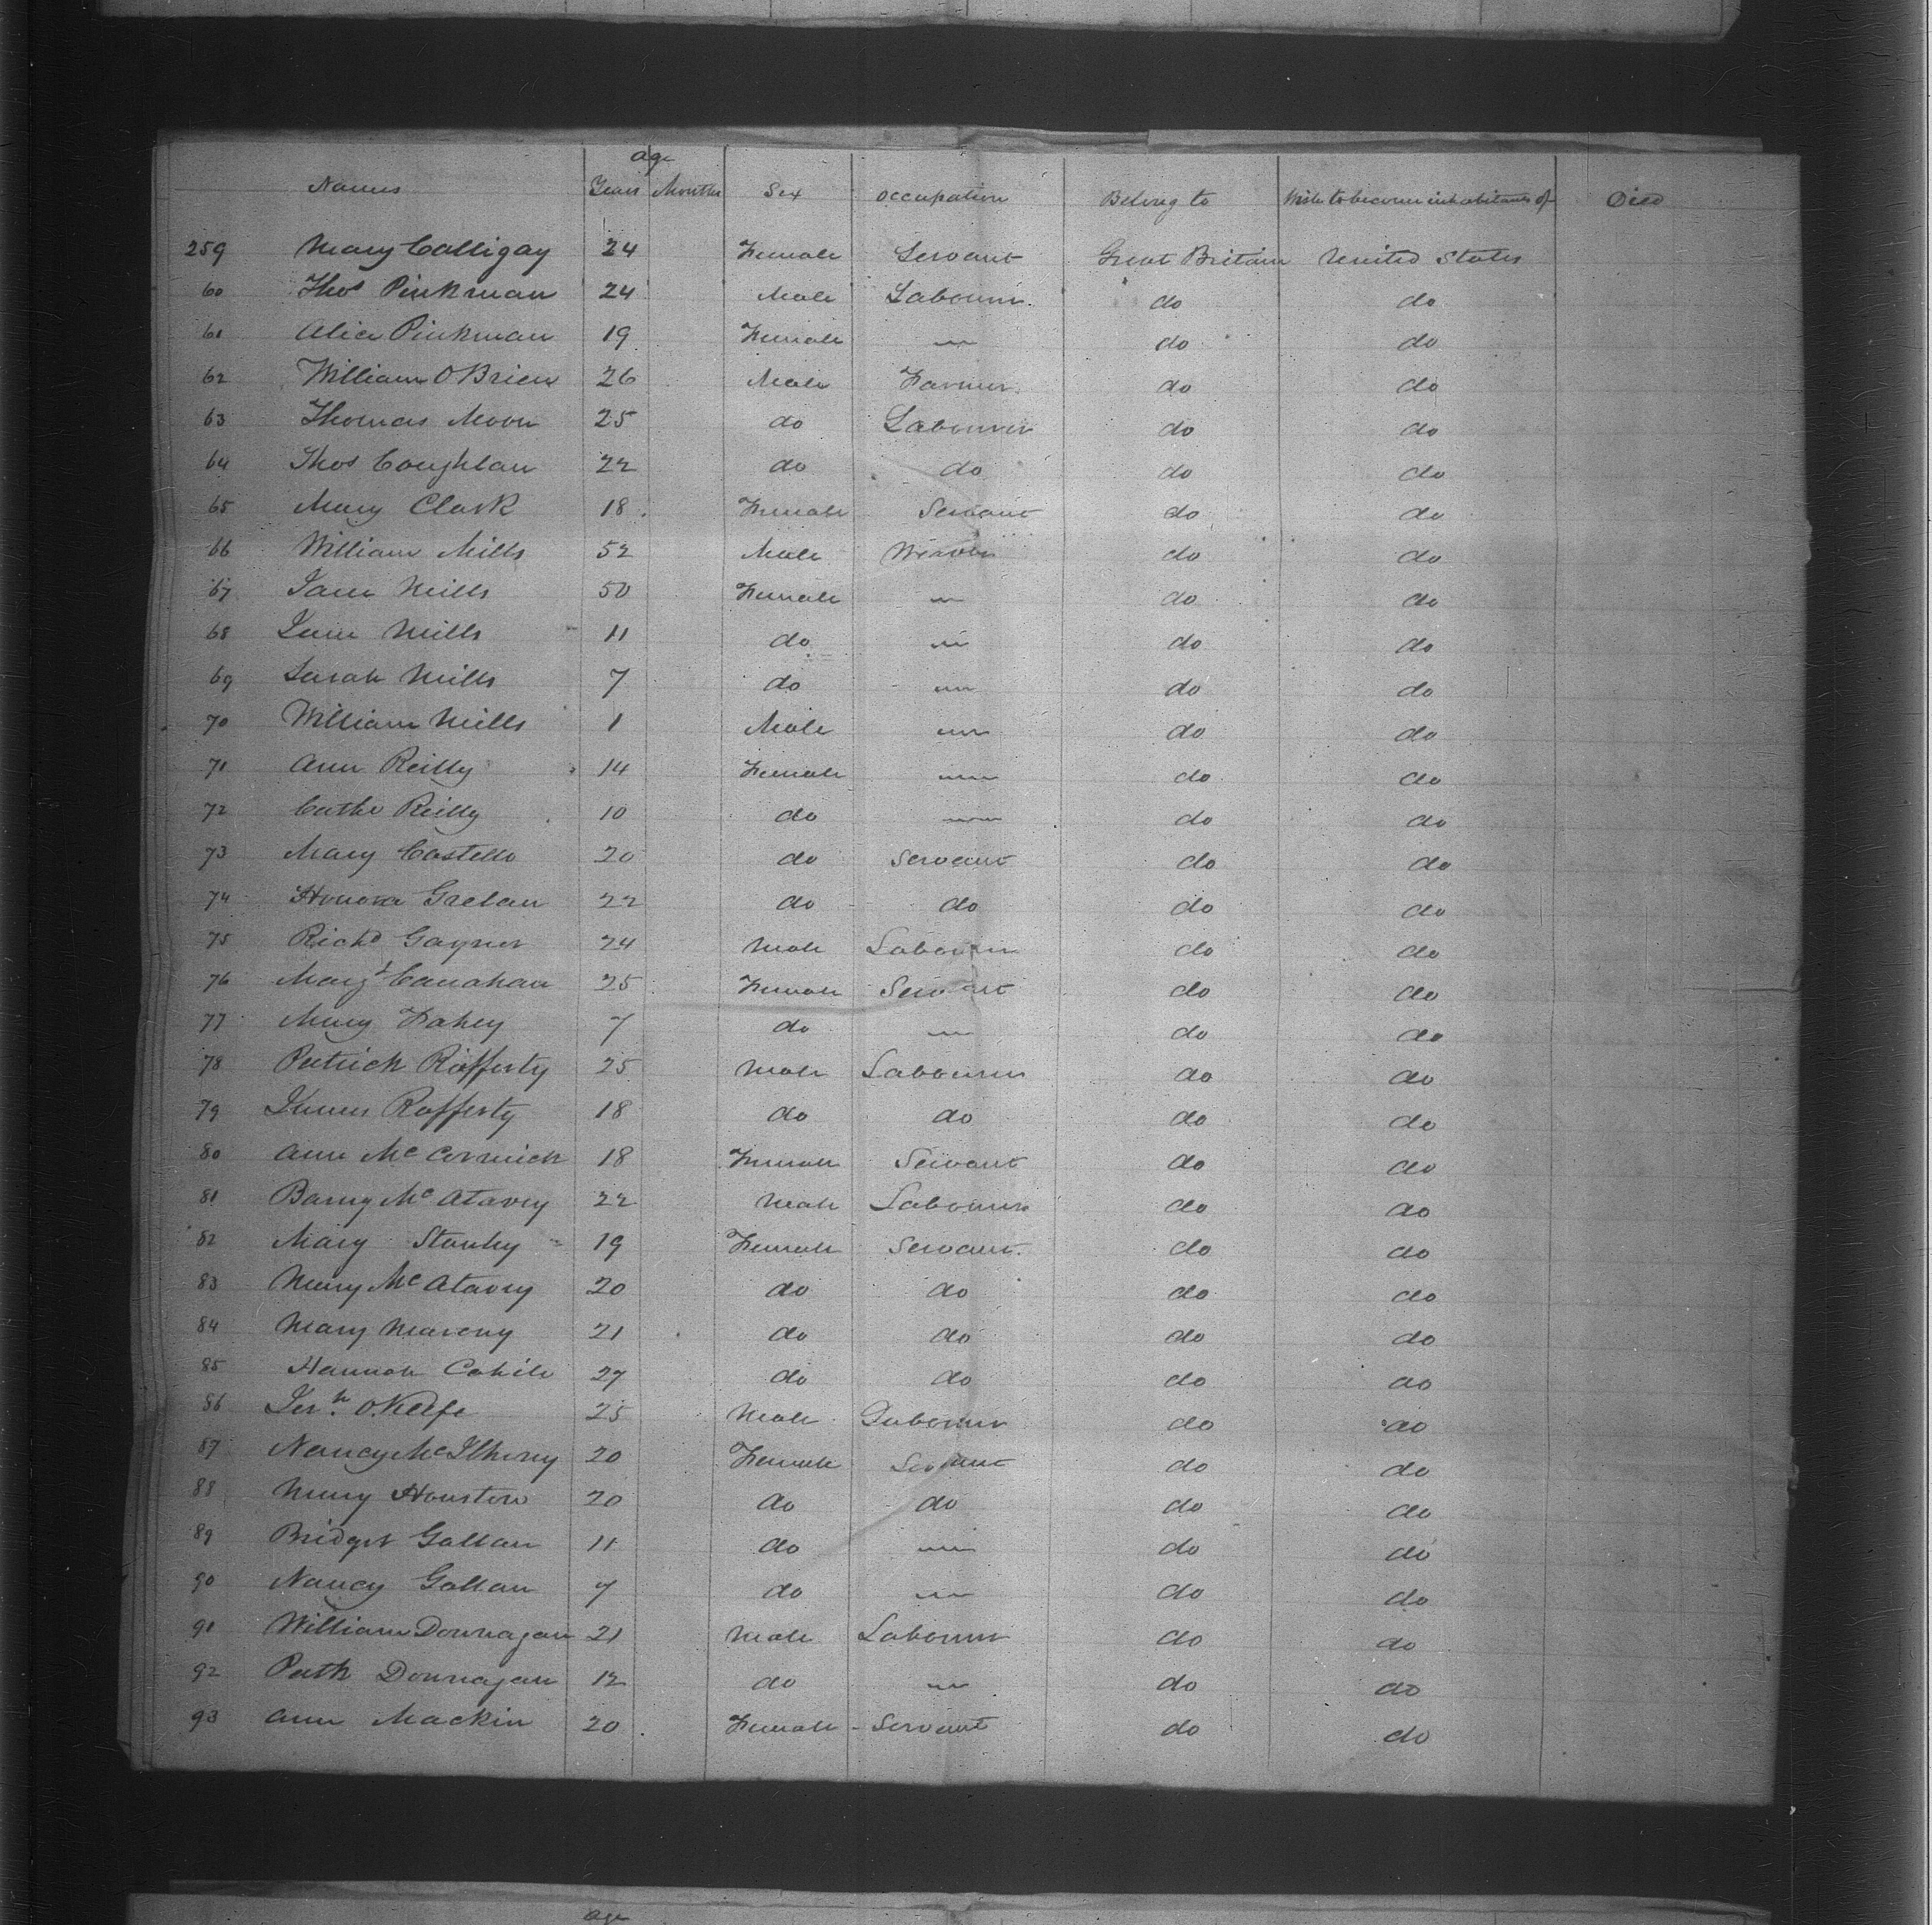 age
Names Years Months Sex Occupation Belong to Wish to become inhabitants of Died
259 Mary Colligay 24 Female Servant Great Britain United States
60 Thos Pinkman 24 Male Labourer do do
61 Alice Pinkman 19 Female " do do
62 William O'Brien 26 Male Farmer do do
63 Thomas Moon 25 do Labourer do do
64 Thos Coughlan 22 do do do do
65 Mary Clark 18 Female Servant do do
66 William Mills 52 Male Weaver do do
67 Jane Mills 50 Female " do do
68 Jane Mills 11 do " do do
69 Sarah Mills 7 do " do do
70 William Mills 1 Male " do do
71 Ann Reilly 14 Female " do do
72 Cathe Reilly 10 do " do do
73 Mary Costello 20 do Servant do do
74 Honora Grelan 22 do do do do
75 Richd Gayner 24 Male Labourer do do
76 Margt Canahan 25 Female Servant do do
77 Mary Fahey 7 do " do do
78 Patrick Rafferty 25 Male Labourer do do
79 James Rafferty 18 do do do do
80 Ann McCormick 18 Female Servant do do
81 Barny McAtavey 22 Male Labourer do do
82 Mary Stanley 19 Female Servant do do
83 Mary McAtavey 20 do do do do
84 Mary Maveny 21 do do do do
85 Hannah Cahile 27 do do do do
86 Jerh O.Keefe 25 Male Labourer do do
87 Nancy McIlheny 20 Female Servant do do
88 Mary Houston 20 do do do do
89 Bridget Gallan 11 do " do do
90 Nancy Gallan 7 do " do do
91 William Donnagan 21 Male Labourer do do
92 Patk Donnagan 12 do " do do
93 Ann Mackin 20 Female Servant do do
age